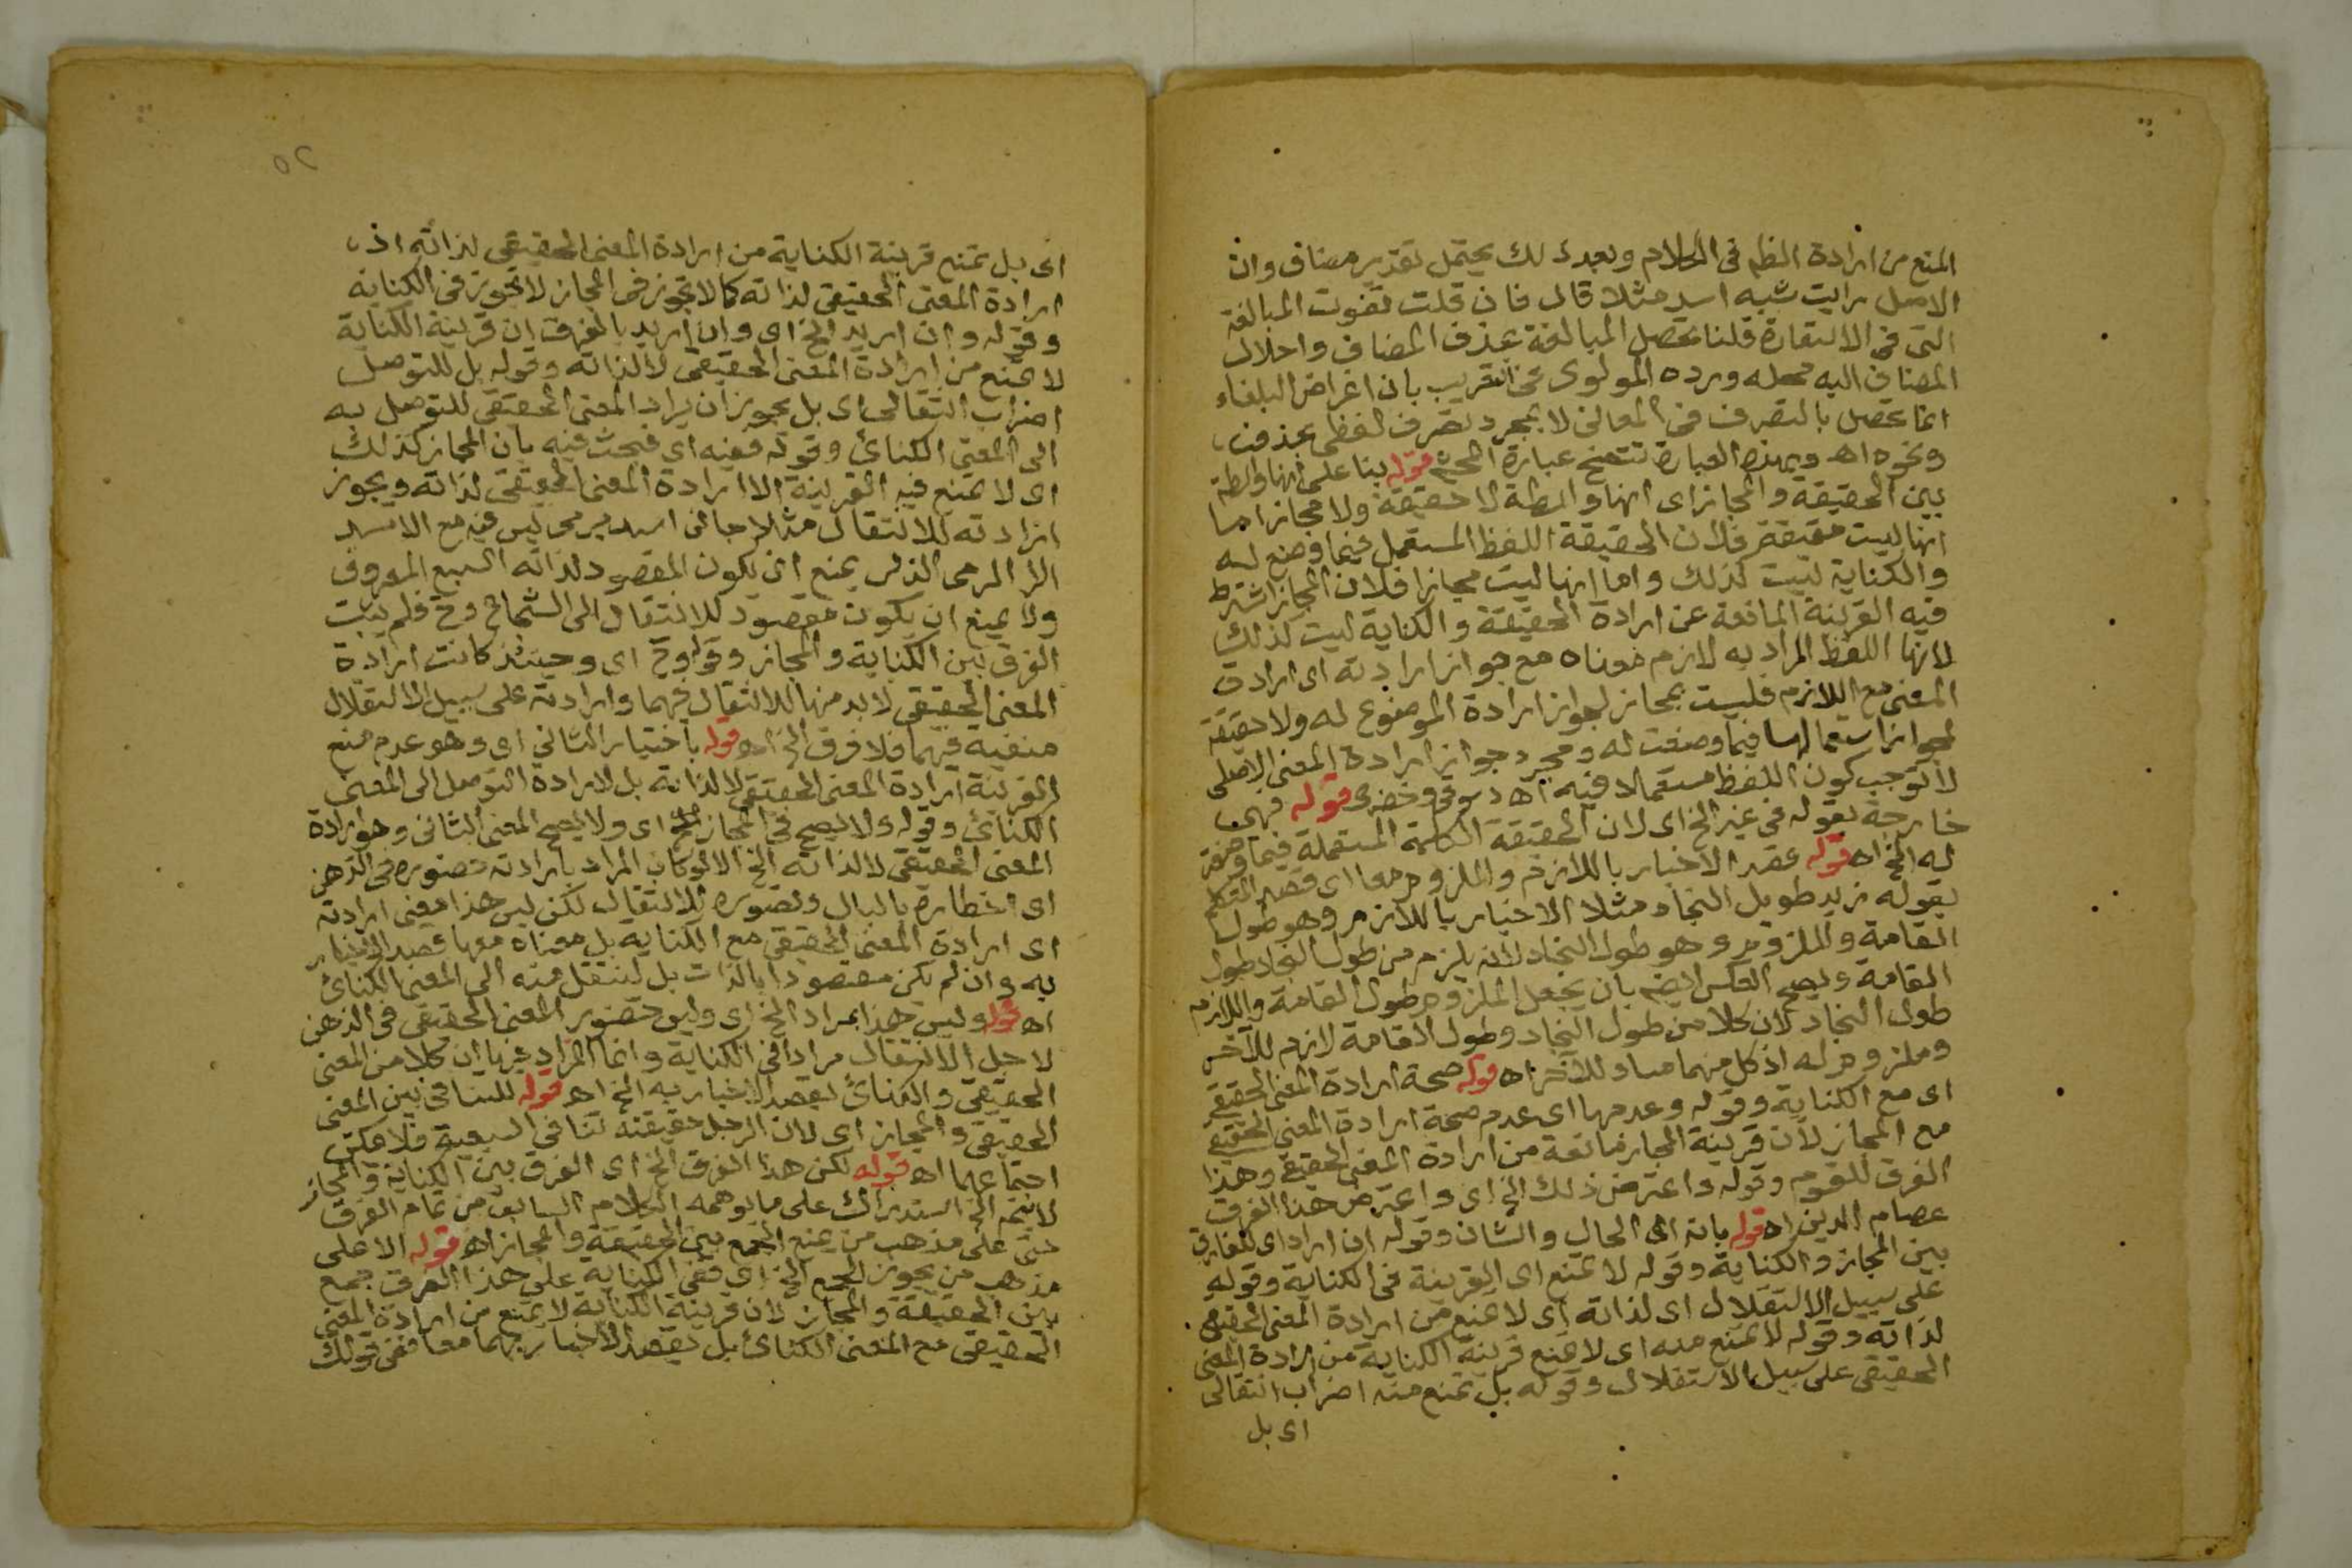 المنع من ارادة الظم فى الكلام وبعد ذلك يحتمل تقدير مضاف وان
الاصل رايت شبه اسد مثلا قال فان قلت تفوت المبالغة
التى فى الاستعارة قلنا تحصل المبالغة بحذف المضاف واحلال
المضاف اليه محله ورده المولوى فى التقريب بان اغراض البلغاء
انما تحصل بالتصرف فى المعانى لا بمجرد تصرف لفظى بحذف
ونحوه اهـ وبهذه العبارة تتضح عبارة المحشى قوله بنا على انها واسطة
بين الحقيقة والمجاز اى انها واسطة لا حقيقة ولا مجاز اما
انها ليست حقيقة فلان الحقيقة اللفظ المستعمل فيما وضع له
والكناية ليست كذلك واما انها ليست مجازا فلان المجاز اشترط
فيه القرينة المانعة عن ارادة الحقيقة والكناية ليست كذلك
لانها اللفظ المراد به لازم معناه مع جواز ارادته اى ارادة
المعنى مع اللازم فليست بمجاز لجواز ارادة الموضوع له ولا حقيقة
لجواز استعمالها فيما وضعت له ومجرد جواز ارادة المعنى الاصلى
لا توجب كون اللفظ مستعملا فيه اهـ دسوقى وخضرى قوله فهى
خارجة بقوله فى غير الخ اى لان الحقيقة الكلمة المستعملة فيما وضعت
له الخ اهـ قوله عقد الاخبار باللازم والملزوم معا اى قصد المتكلم
بقوله زيد طويل النجاد مثلا الاخبار باللازم وهو طول
القامة والملزوم وهو طول النجاد لانه يلزم من طول النجاد طول
القامة ويصح العكس ايضا بان يجعل الملزوم طول القامة واللازم
طول النجاد لان كلا من طول النجاد وطول القامة لازم للآخر
وملزوم له اذ كل منهما مساو للآخر اهـ قوله صحة ارادة المعنى الحقيقى
اى مع الكناية وقوله وعدمها اى عدم صحة ارادة المعنى الحقيقى
مع المجاز لان قرينة المجاز مانعة من ارادة المعنى الحقيقى وهذا
الفرق للقوم وقوله واعترض ذلك الخ اى واعترض هذا الفرق
عصام الدين اهـ قوله بانه اى الحال والشان وقوله ان اراد اى للفارق
بين المجاز والكناية وقوله لا تمنع اى القرينة فى الكناية وقوله
على سبيل الاستقلال اى لذاته اى لا تمنع من ارادة المعنى الحقيقى
لذاته وقوله لا تمنع منه اى لا تمنع قرينة الكناية من ارادة المعنى
الحقيقى على سبيل الاستقلال وقوله بل تمنع منه اضراب انتقالى
اى بل
٥٢
اى بل تمنع قرينة الكناية من ارادة المعنى الحقيقى لذاته اذ
ارادة المعنى الحقيقى لذاته كما لا تجوز فى المجاز لا تجوز فى الكناية
وقوله وان اريد الخ اى وان اريد بالفرق ان قرينة الكناية
لا تمنع من ارادة المعنى الحقيقى لا لذاته وقوله بل للتوصل
اضراب انتقالى اى بل يجوز ان يراد المعنى الحقيقى للتوصل به
الى المعنى الكنائى وقوله ففيه اى فبحث فيه بان المجاز كذلك
اى لا تمنع فيه القرينة الا ارادة المعنى الحقيقى لذاته ويجوز
ارادته للانتقال مثلا جانى اسد يرمى ليس فيه مع الاسد
الا الرمى الذى يمنع ان يكون المقصود لذاته السبع المعروف
ولا يمنع ان يكون مقصود للانتقال الى الشجاع وح فلم يثبت
الفرق بين الكناية والمجاز وقوله وح اى وحينئذ كانت ارادة
المعنى الحقيقى لا بد منها للانتقال فيهما وارادته على سبيل الاستقلال
منفية فيهما فلا فرق الخ اهـ قوله باختيار الثانى اى وهو عدم منع
القرينة ارادة المعنى الحقيقى لا لذاته بل لارادة التوصل الى المعنى
الكنائى وقوله ولا يصح فى المجاز الخ اى ولا يصح المعنى الثانى وهو ارادة
المعنى الحقيقى لا لذاته الخ الا لو كان المراد بارادته حضوره فى الذهن
اى اخطاره بالبال وتصوره للانتقال لكن ليس هذا معنى ارادته
اى ارادة المعنى الحقيقى مع الكناية بل معناه معها قصد الاخبار
به وان لم يكن مقصودا بالذات بل لننتقل منه الى المعنى الكنائى
اهـ قوله وليس هذا بمراد الخ اى وليس حضور المعنى الحقيقى فى الذهن
لاجل الانتقال مرادا فى الكناية وانما المراد غير ما ان كلا من المعنى
الحقيقى والكنائى يقصد الاخبار به الخ اهـ قوله للتنافى بين المعنى
الحقيقى والمجاز اى لان الرجل حقيقته تنافى السبعية فلا يمكن
اجتماعهما اهـ قوله لكن هذا الفرق الخ اى الفرق بين الكناية والمجاز
لا يتم الخ استدراك على ما يوهمه الكلام السابق من تمام الفرق
حتى على مذهب من يمنع الجمع بين الحقيقة والمجاز اهـ قوله الا على
مذهب من يجوز الجمع الخ اى ففى الكناية على هذا الفرق جمع
بين الحقيقة والمجاز لان قرينة الكناية لا تمنع من ارادة المعنى
الحقيقى مع المعنى الكنائى بل يقصد الاخبار بهما معا ففى قولك